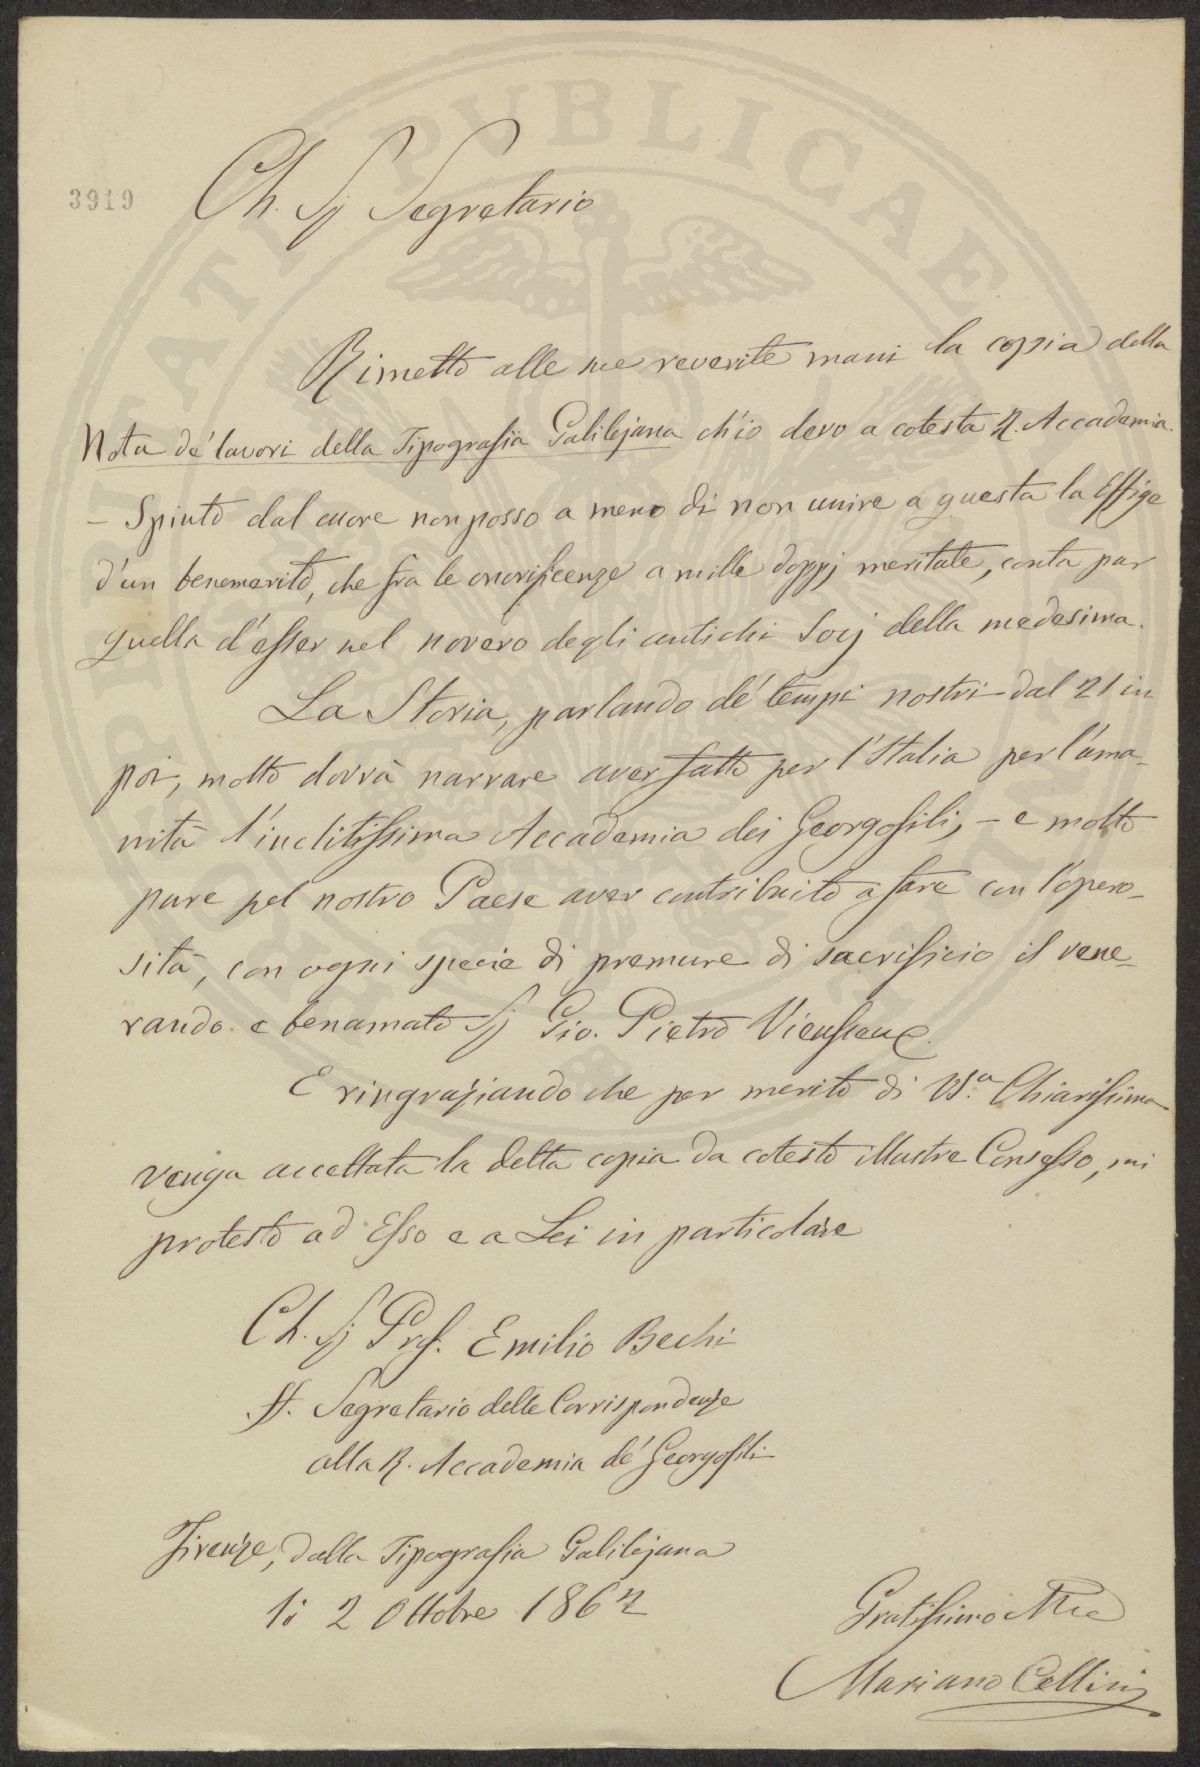 PROSPERITATI PUBLICAE
3919
Ch. Sig Segretario
Rimetto alle sue reverite mani la copia della
Nota de' lavori della Tipografia Galilejana ch'io devo a cotesta R. Accademia.
– Spinto dal cuore non posso a meno di non unire a questa la Effige
d'un benemerito, che fra le onorificenze a mille doppj meritate, conta pur
quella d'esser nel novero degli antichi Socj della medesima.
La Storia, parlando de' tempi nostri dal 21 in
poi, molto dovrà narrare aver fatto per l'Italia per l'uma-
nità l'inclitissima Accademia dei Georgofili, – e molto
pure pel nostro Paese aver contribuito a fare con l'opero-
sità, con ogni specie di premure di sacrificio il vene-
rando e benamato Sig Gio. Pietro Vieusseux.
E ringraziando che per merito di VS.a Chiarissima
venga accettata la detta copia da cotesto illustre Consesso, mi
protesto ad Esso e a Lei in particolare
Ch. Sig Prof. Emilio Bechi
ff. Segretario delle Corrispondenze
alla R. Accademia de' Georgofili
Firenze, dalla Tipografia Galilejana
li 2 Ottobre 1862
Gratissimo
Mariano Cellini